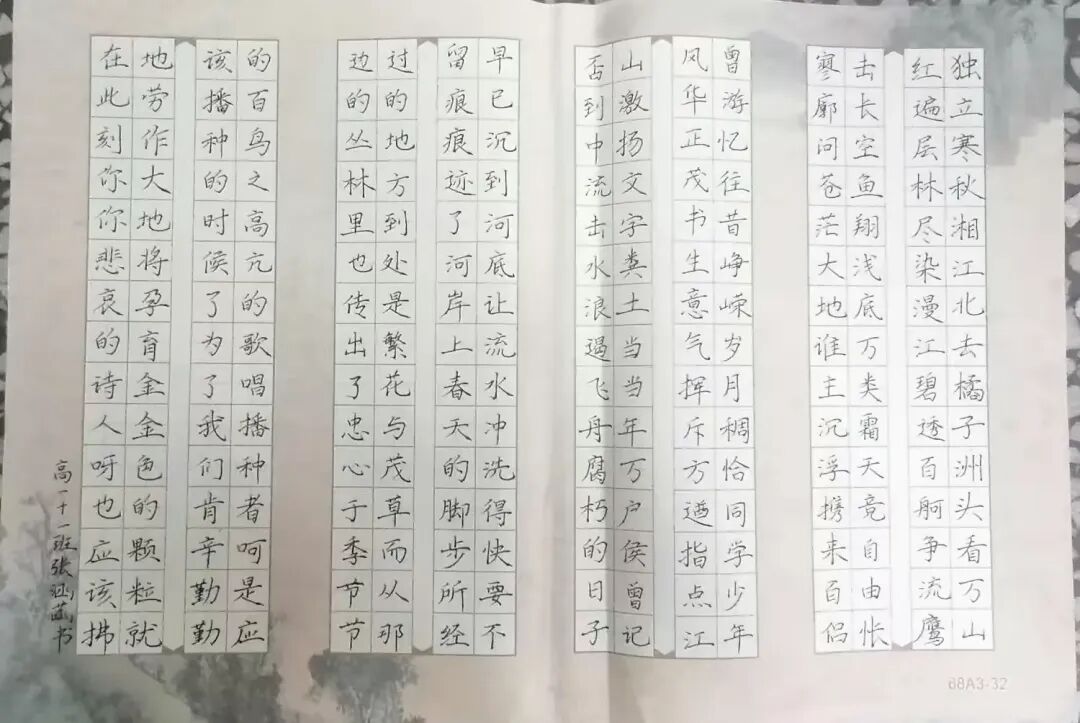 独立寒秋湘江北去橘子洲头看万山
红遍层林尽染漫江碧透百舸争流鹰
击长空鱼翔浅底万类霜天竞自由怅
寥廓问苍茫大地谁主沉浮携来百侣
曾游忆往昔峥嵘岁月稠恰同学少年
风华正茂书生意气挥斥方遒指点江
山激扬文字粪土当当年万户侯曾记
否到中流击水浪遏飞舟腐朽的日子
早已沉到河底让流水冲洗得快要不
留痕痕迹了河岸上春天的脚步所经
过的地方到处是繁花与茂草而从那
边的丛林里也传出了忠心于季节节
的百鸟之高亢的歌唱播种者呵是应
该播种的时候了为了我们肯辛勤勤
地劳作大地将孕育金金色的颗粒就
在此刻你你悲哀的诗人呀也应该拂
高一十一班张书
68A3-32